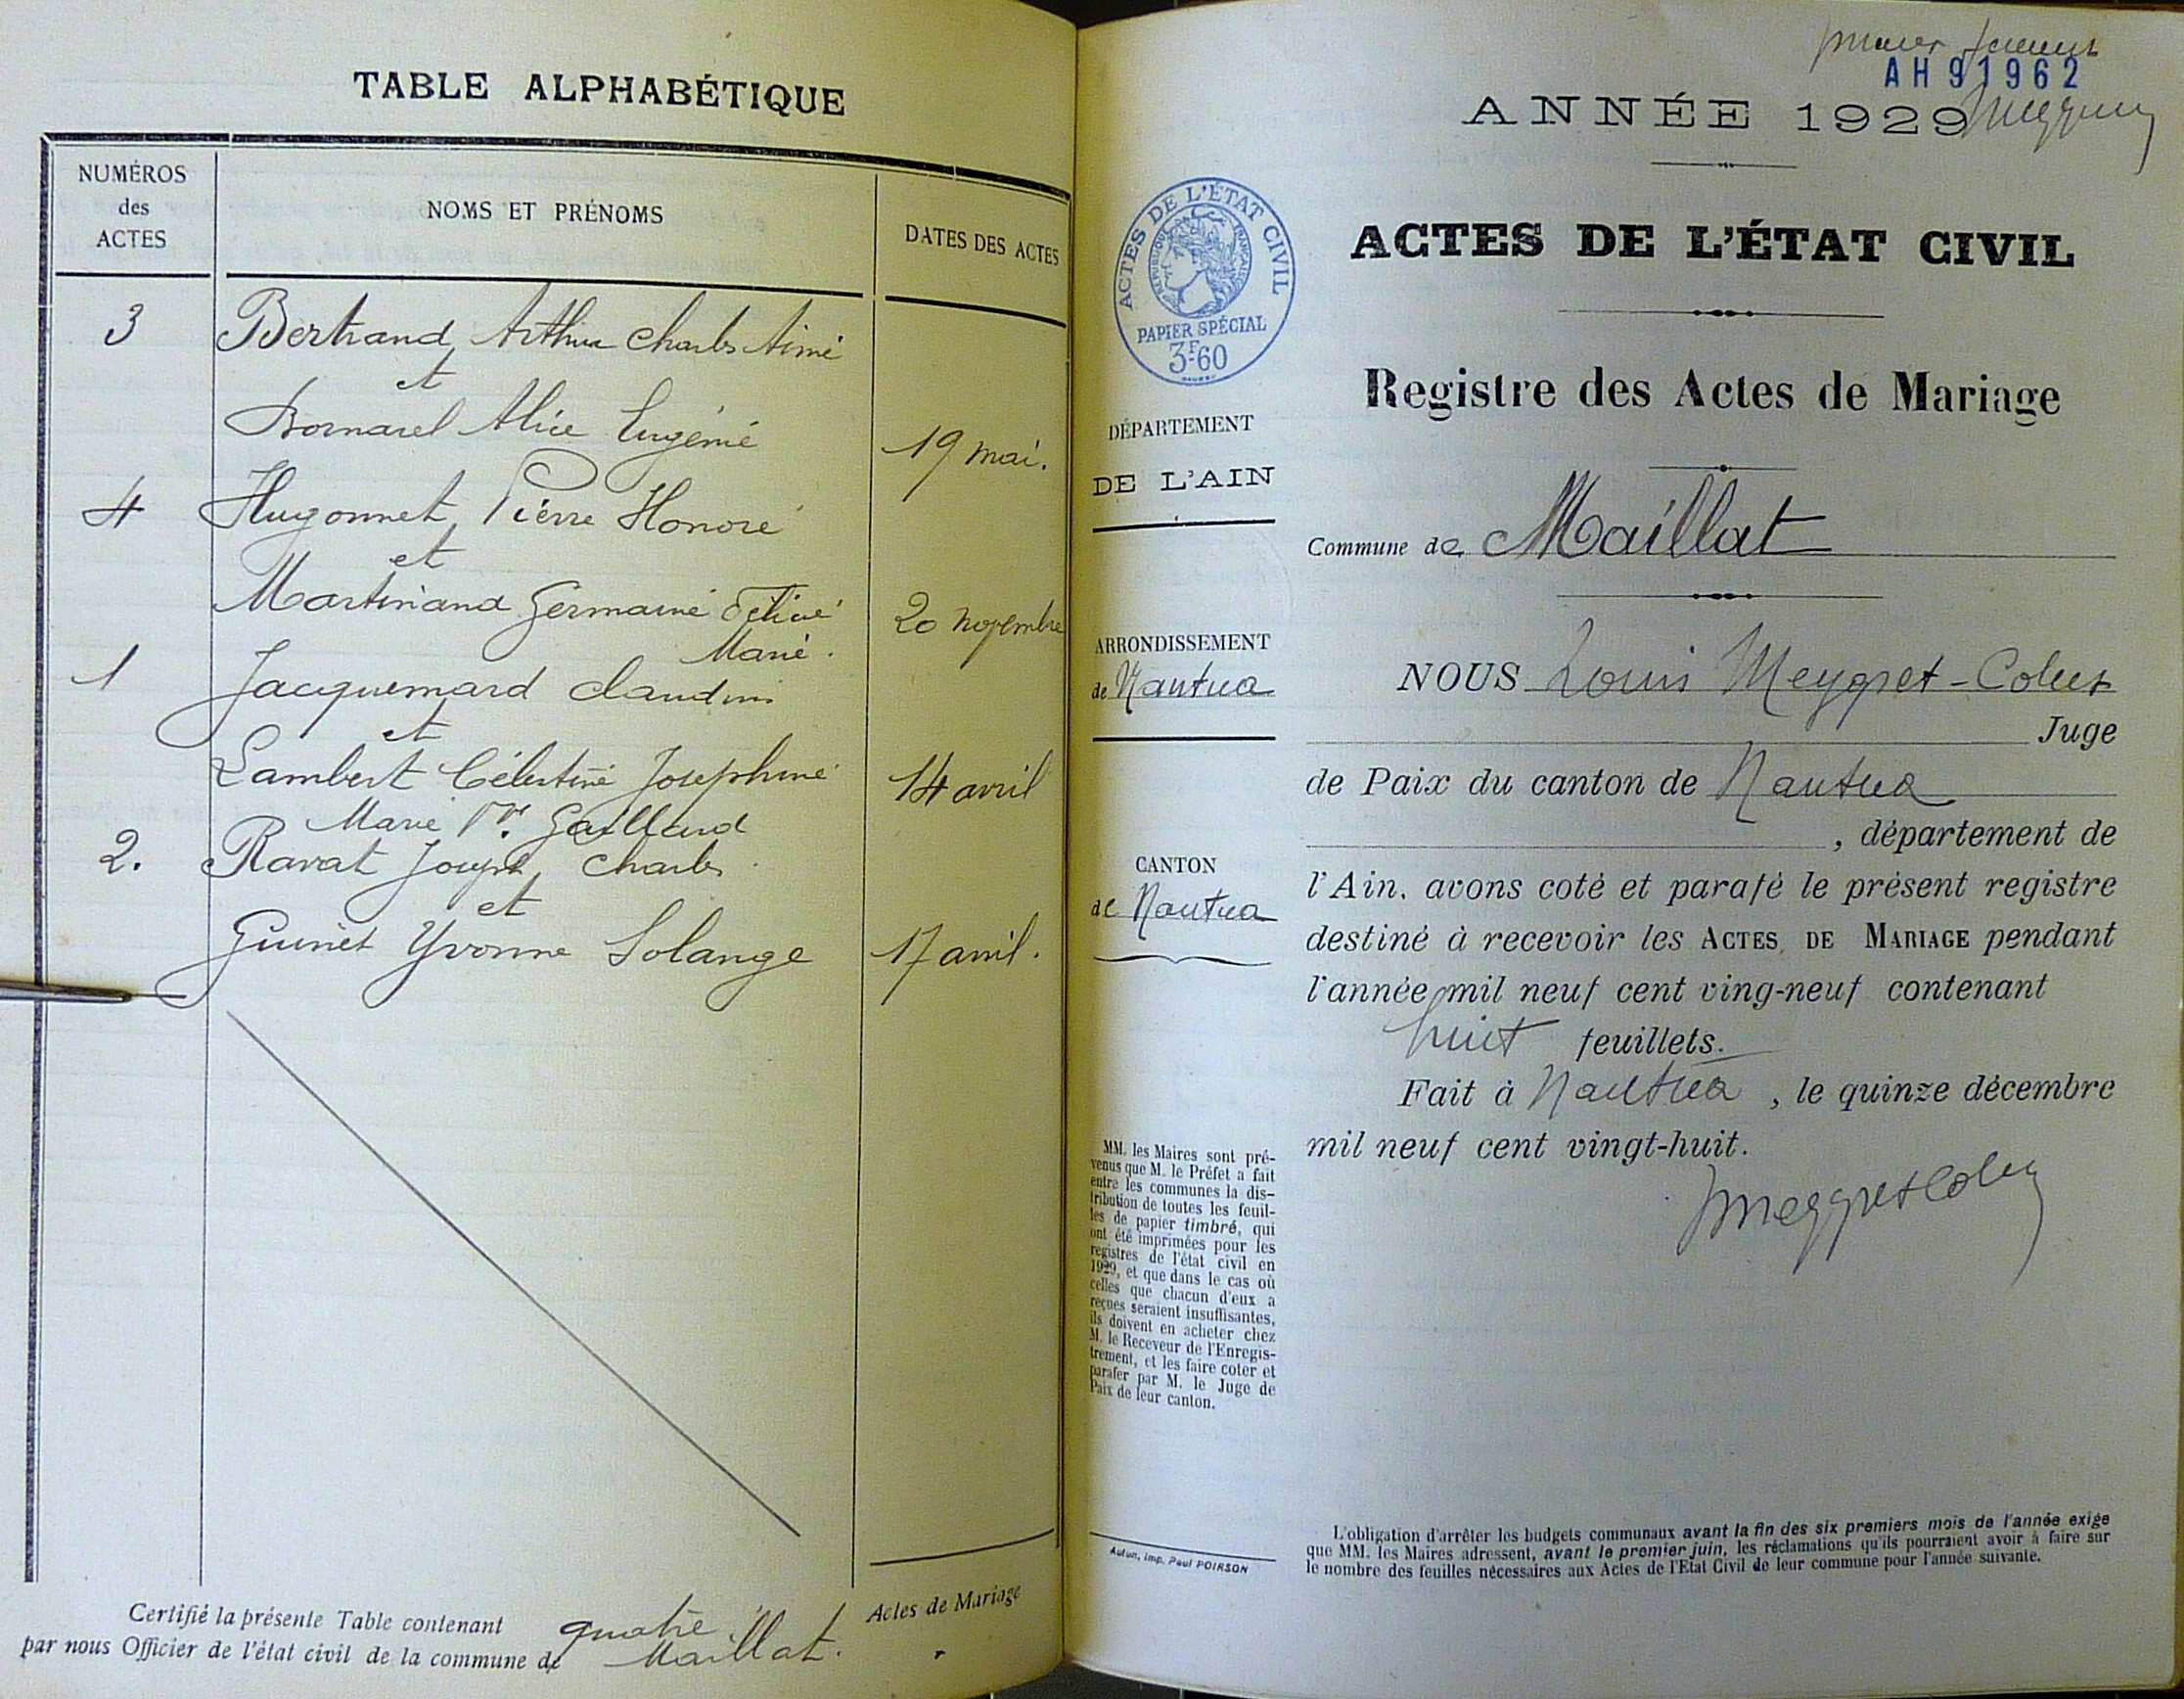 TABLE ALPHABÉTIQUE
NUMÉROS
des
ACTES
NOMS ET PRÉNOMS
DATES DES ACTES
3 Bertrand Arthur Charles Aimé
et
Bornarel Alice Eugénie 19 mai.
4 Hugonnet Pierre Honoré
et
Martinand Germaine 20 novembre
Marie.
1 Jacquemard Claudius
et
Lambert Célestine Josephine 14 avril
Marie Vve Gaillard
2. Ravat Joseph Charles
et
Guinet Yvonne Solange 17 avril.
Certifié la présente Table contenant quatre Actes de Mariage
par nous Officier de l'état civil de la commune de Maillat.
premier feuillet
AH 91962
ANNÉE 1929
ACTES DE L'ÉTAT CIVIL
RÉPUBLIQUE FRANÇAISE
PAPIER SPÉCIAL
3F.60
ACTES DE L'ÉTAT CIVIL
Registre des Actes de Mariage
DÉPARTEMENT
DE L'AIN
Commune de Maillat
ARRONDISSEMENT
de Nantua
CANTON
de Nantua
NOUS Louis Meygret-Collet
Juge
de Paix du canton de Nantua
, département de
l'Ain, avons coté et parafé le présent registre
destiné à recevoir les ACTES DE MARIAGE pendant
l'année mil neuf cent ving-neuf contenant
huit feuillets.
Fait à Nantua, le quinze décembre
mil neuf cent vingt-huit.
MM. les Maires sont pré-
venus que M. le Préfet a fait
entre les communes la dis-
tribution de toutes les feuil-
les de papier timbré, qui
ont été imprimées pour les
registres de l'état civil en
1929, et que dans le cas où
celles que chacun d'eux a
reçues seraient insuffisantes,
ils doivent en acheter chez
M. le Receveur de l'Enregis-
trement, et les faire coter et
parafer par M. le Juge de
Paix de leur canton.
Autun, Imp. Paul POIRSON
L'obligation d'arrêter les budgets communaux avant la fin des six premiers mois de l'année exige
que MM. les Maires adressent, avant le premier juin, les réclamations qu'ils pourraient avoir à faire sur
le nombre des feuilles nécessaires aux Actes de l'Etat Civil de leur commune pour l'année suivante.